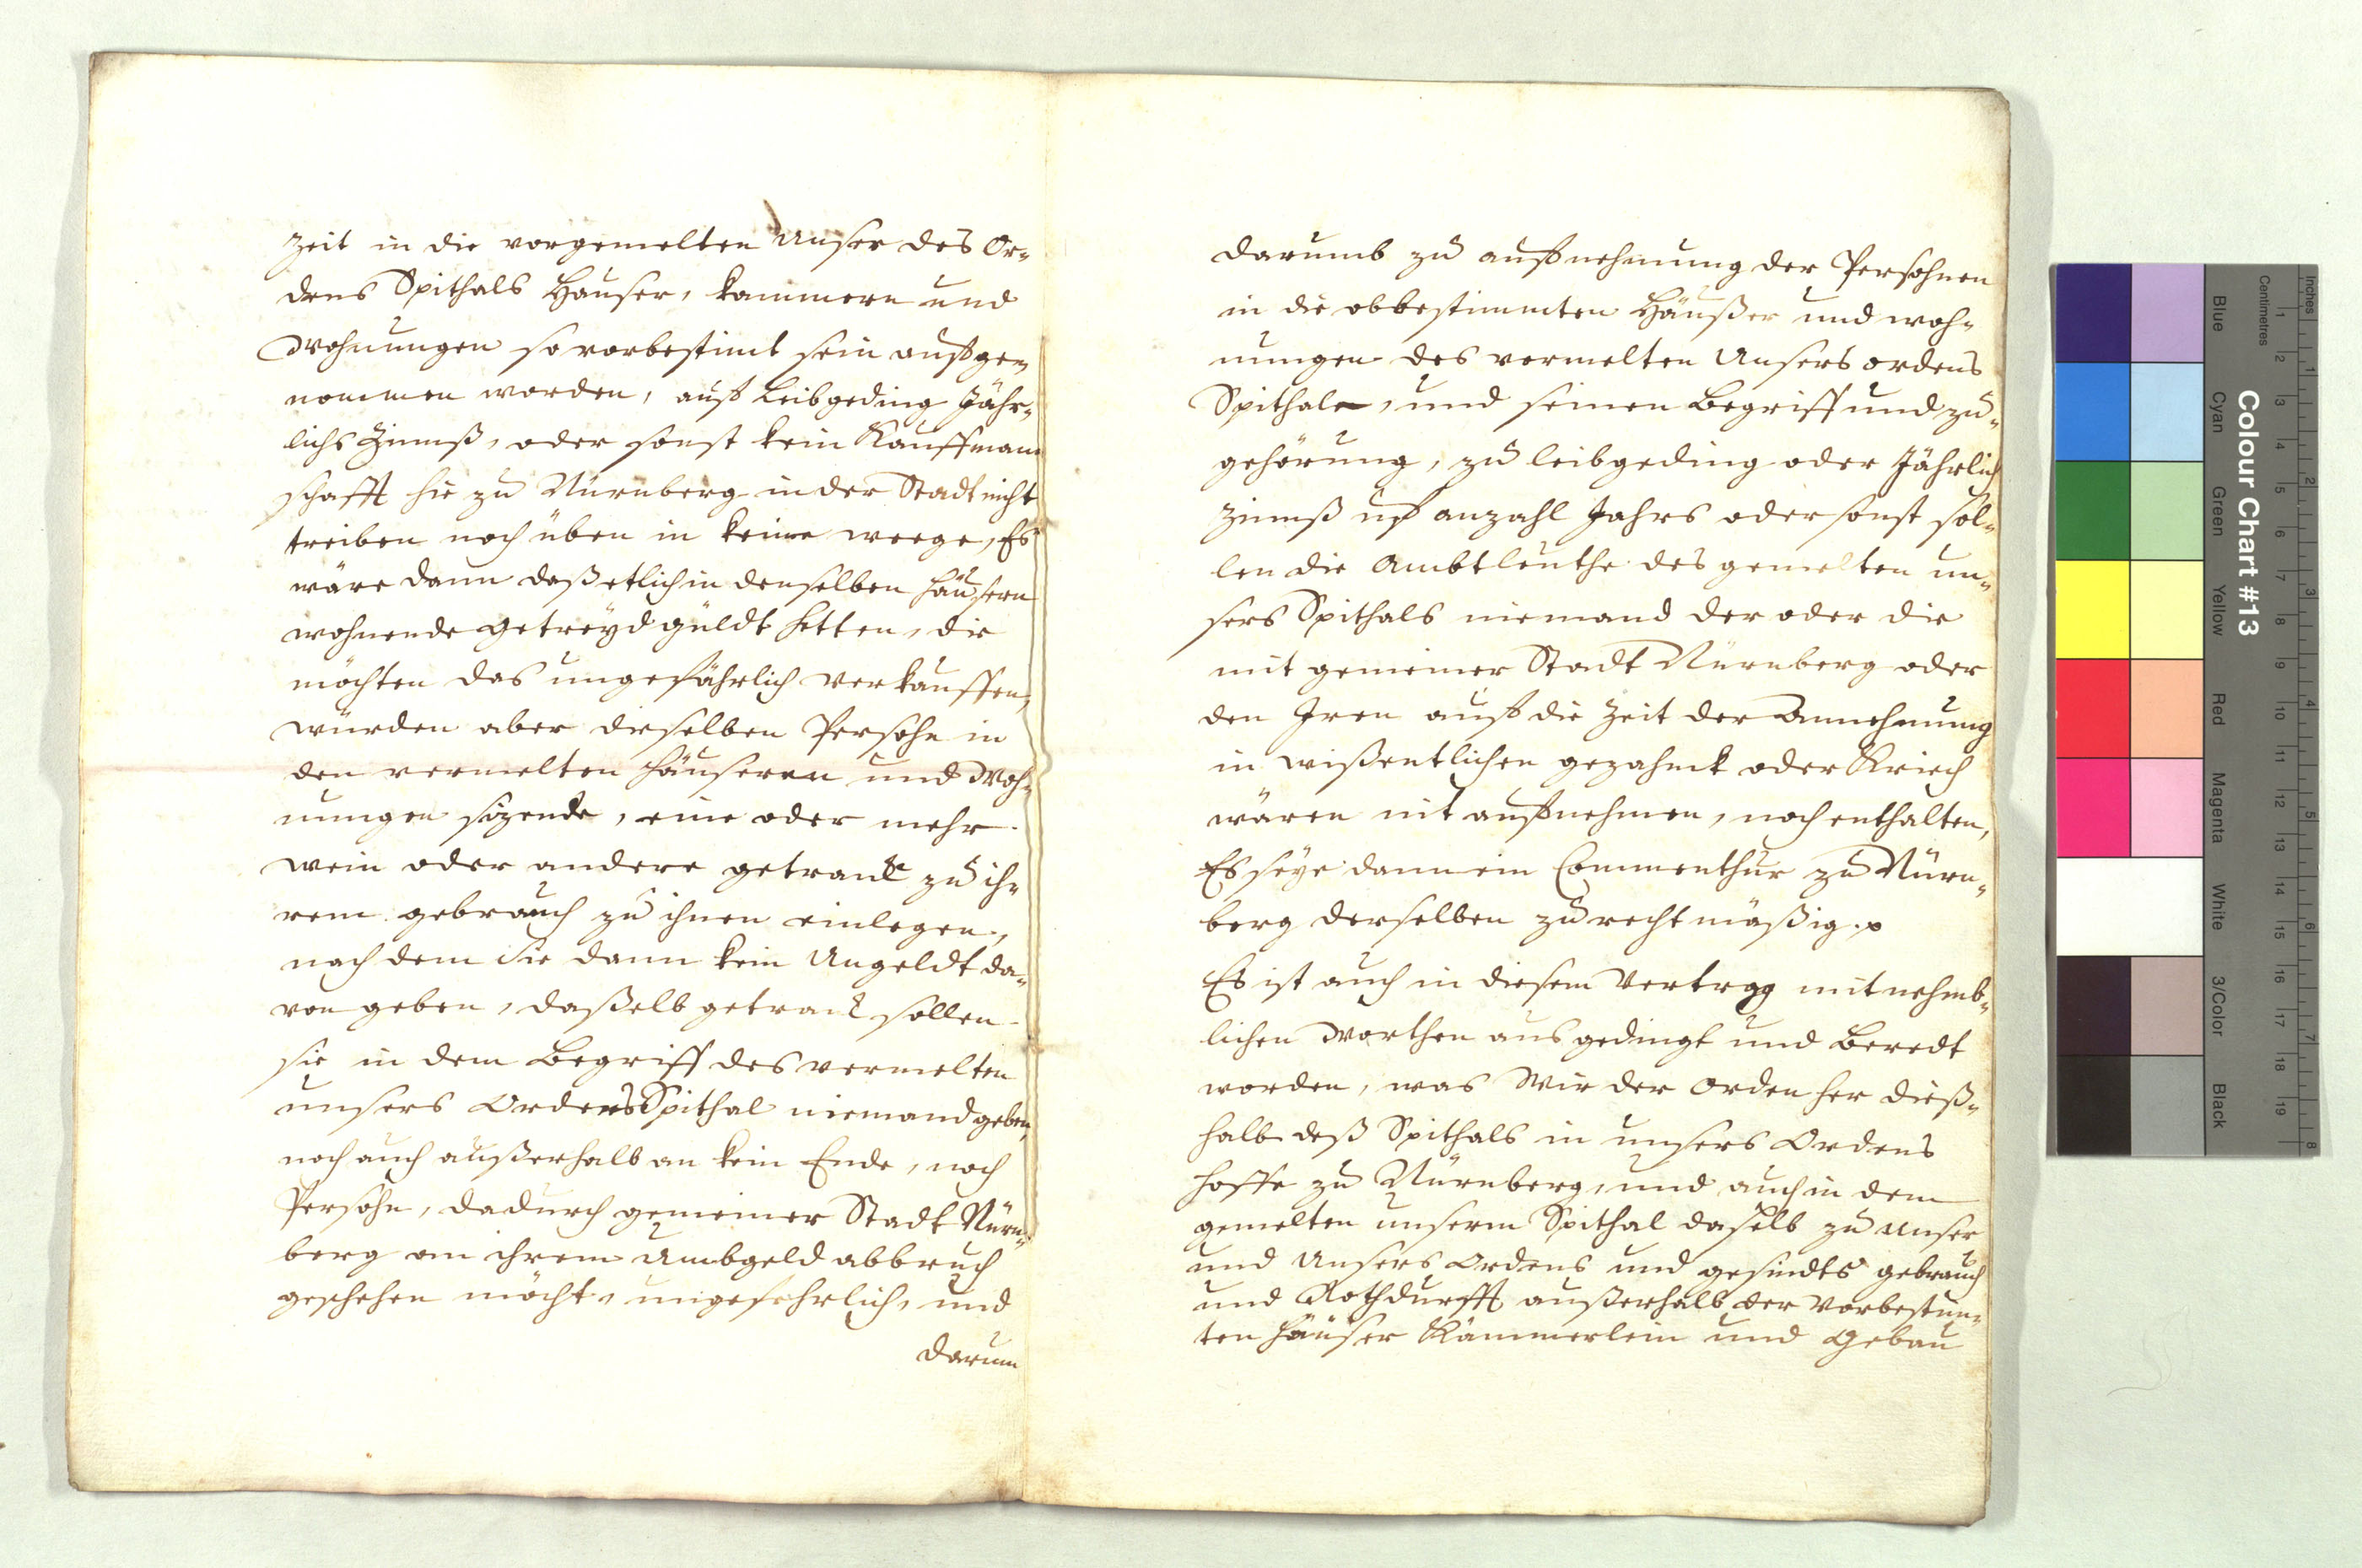 Zeit in die vorgemelten Unser des Or=
dens Spithals Hauser, kammern und
Wohnungen so vorbestimt sein auffge=
nommen worden, auff Leibgeding Jähr=
lichs Zinnß, oder sonst kein Kauffman
schafft hie zu Nürnberg in der Stadt nicht
treiben noch üben in keine weege, Es
wäre dann daß etlich in denselben häusern
wohnende getreyd güldt hetten, die
möchten das ungefährlich verkauffen,
würden aber dieselben Persohn in
den vermelten häusern und Woh=
nungen sizende, eine oder mehr
wein oder andere getrank zu ih=
rem gebrauch zu ihnen einlegen,
nach dem sie dann kein Ungeldt da=
von geben, daßelb getrank sollen
sie in dem Begriff des vermelten
unsers Ordens Spithal niemand geben,
noch auch außerhalb an kein Ende, noch
Persohn, dadurch gemeiner Stadt Nürn=
berg an ihrem Umbgeld abbruch
geschehen möcht, ungefehrlich, und
darum
darumb zu auffnehmung der Persohnen
in die obbestimmten Häußer und woh=
nungen des vermelten Unsers ordens
Spithale, und seinen Begriff und zu=
gehörung, zu leibgeding oder Jährlich
Zinnß uff anzahl Jahrs oder sonst sol=
len die Ambtleuthe des gemelten un=
sers Spithals niemand der oder die
mit gemeiner Stadt Nürnberg oder
den Iren auff die Zeit der Annehmung
in wißentlichen gezahnck oder Kriech
wären nit auffnehmen, noch enthalten,
Es seye dann ein Commenthur zu Nürn=
berg derselben zu recht mäßig.
Es ist auch in diesem Vertrag mit nehmb=
lichen Worthen ausgedingt und Beredt
worden, was Wir der Orden her dieß=
halb deß Spithals in unsers Ordens
hoffe zu Nürnberg, und auch in dem
gemelten unserm Spithal daselb zu Unser
und Unsers Ordens und gesindts gebrauch
und Nothdurfft außerhalb der vorbestim=
ten häuser Kämmerlein und Gebäu
Colour Chart #13
Blue
Cyan
Green
Yellow
Red
Magenta
White
3/Color
Black
Centimetres
Inches
1
2
3
4
5
6
7
8
9
10
11
12
13
14
15
16
17
18
19
1
2
3
4
5
6
7
8